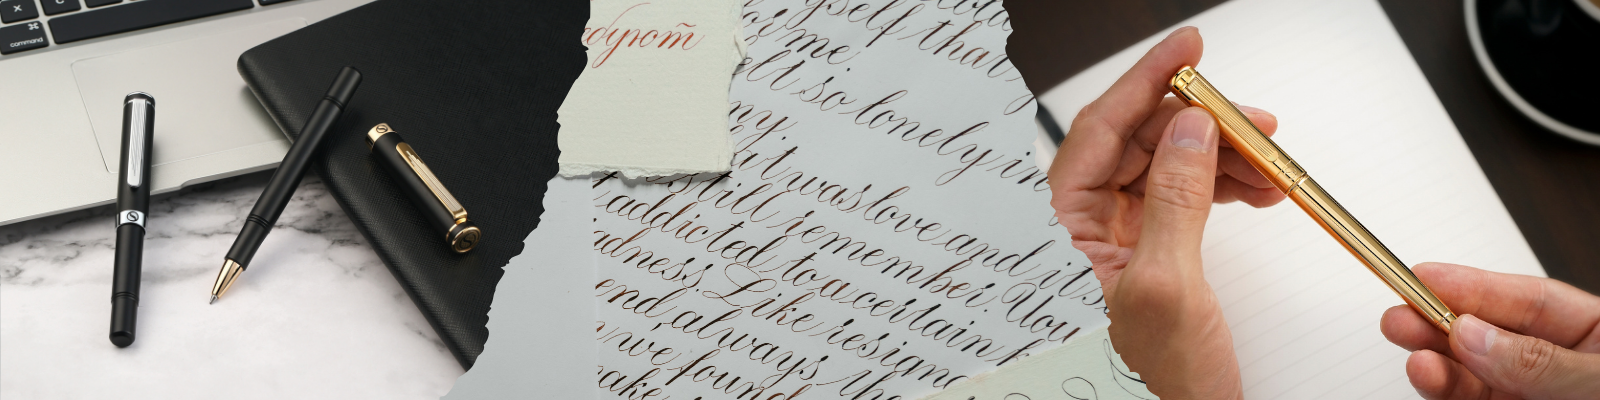 X
C
command
yself that
or me
elt so lonely in
ny.
at was love and it's
still remember. You
addicted to a certain k
adness. Like resigna
end always the
we found
ake